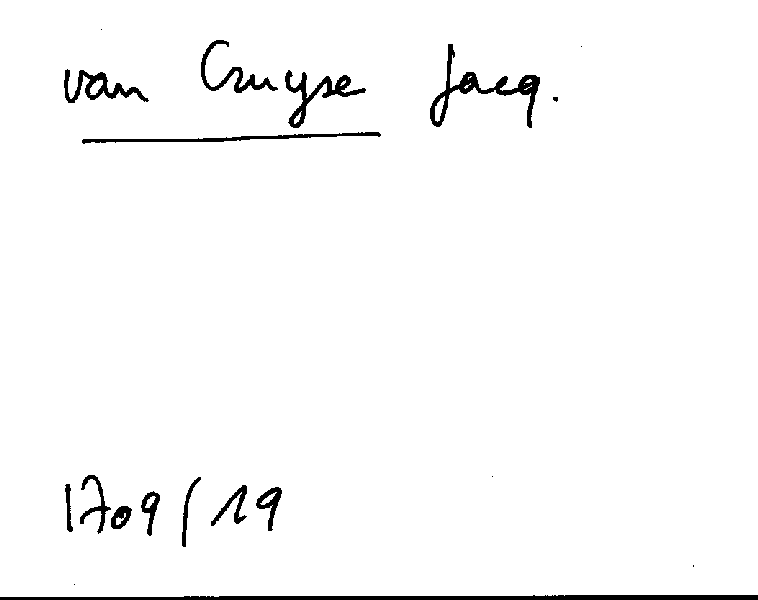 van Cruyse Jacq.
1709/19